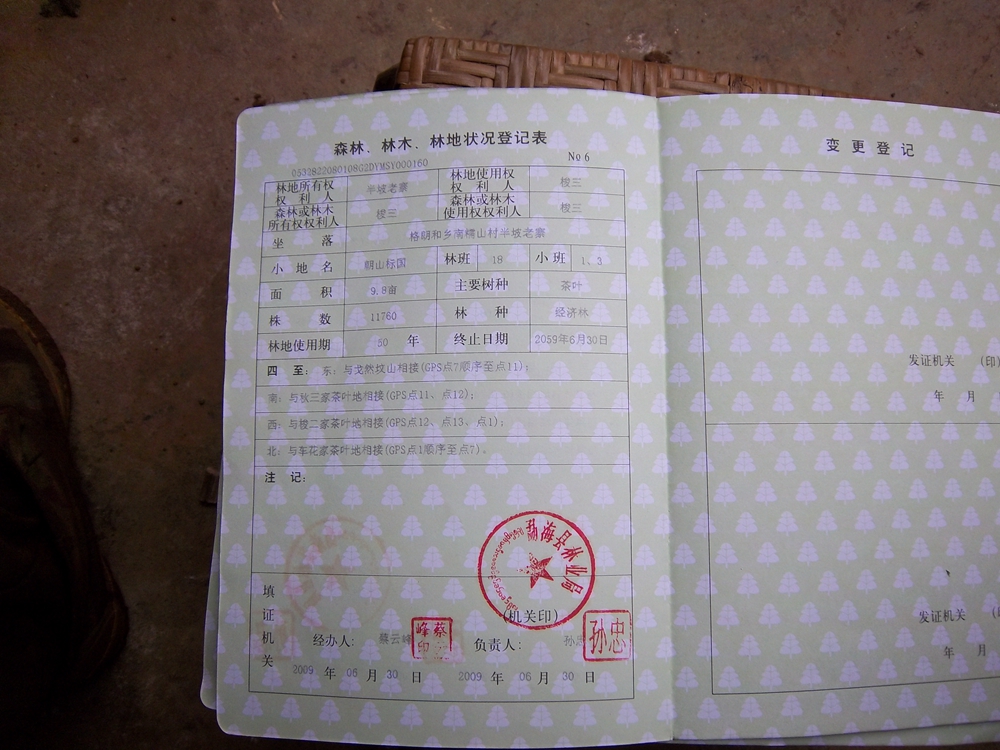 森林、林木、林地状况登记表
No 6
0532822080108G2DYMSY000160
林地所有权权利人 半坡老寨 林地使用权权利人 梭三
森林或林木所有权权利人 梭三 森林或林木使用权权利人 梭三
坐落 格朗和乡南糯山村半坡老寨
小地名 朝山标国 林班 18 小班 1、3
面积 9.8亩 主要树种 茶叶
株数 11760 林种 经济林
林地使用期 50 年 终止日期 2059年6月30日
四至: 东: 与戈然坟山相接(GPS点7顺序至点11);
南: 与秋三家茶叶地相接(GPS点11、点12);
西: 与梭二家茶叶地相接(GPS点12、点13、点1);
北: 与车花家茶叶地相接(GPS点1顺序至点7)。
注记:
勐海县林业局
填证机关
(机关印)
经办人: 蔡云峰 蔡峰印 负责人: 孙忠 孙忠
2009 年 06 月 30 日 2009 年 06 月 30 日
变更登记
发证机关 (印)
年 月
发证机关 (
年 月